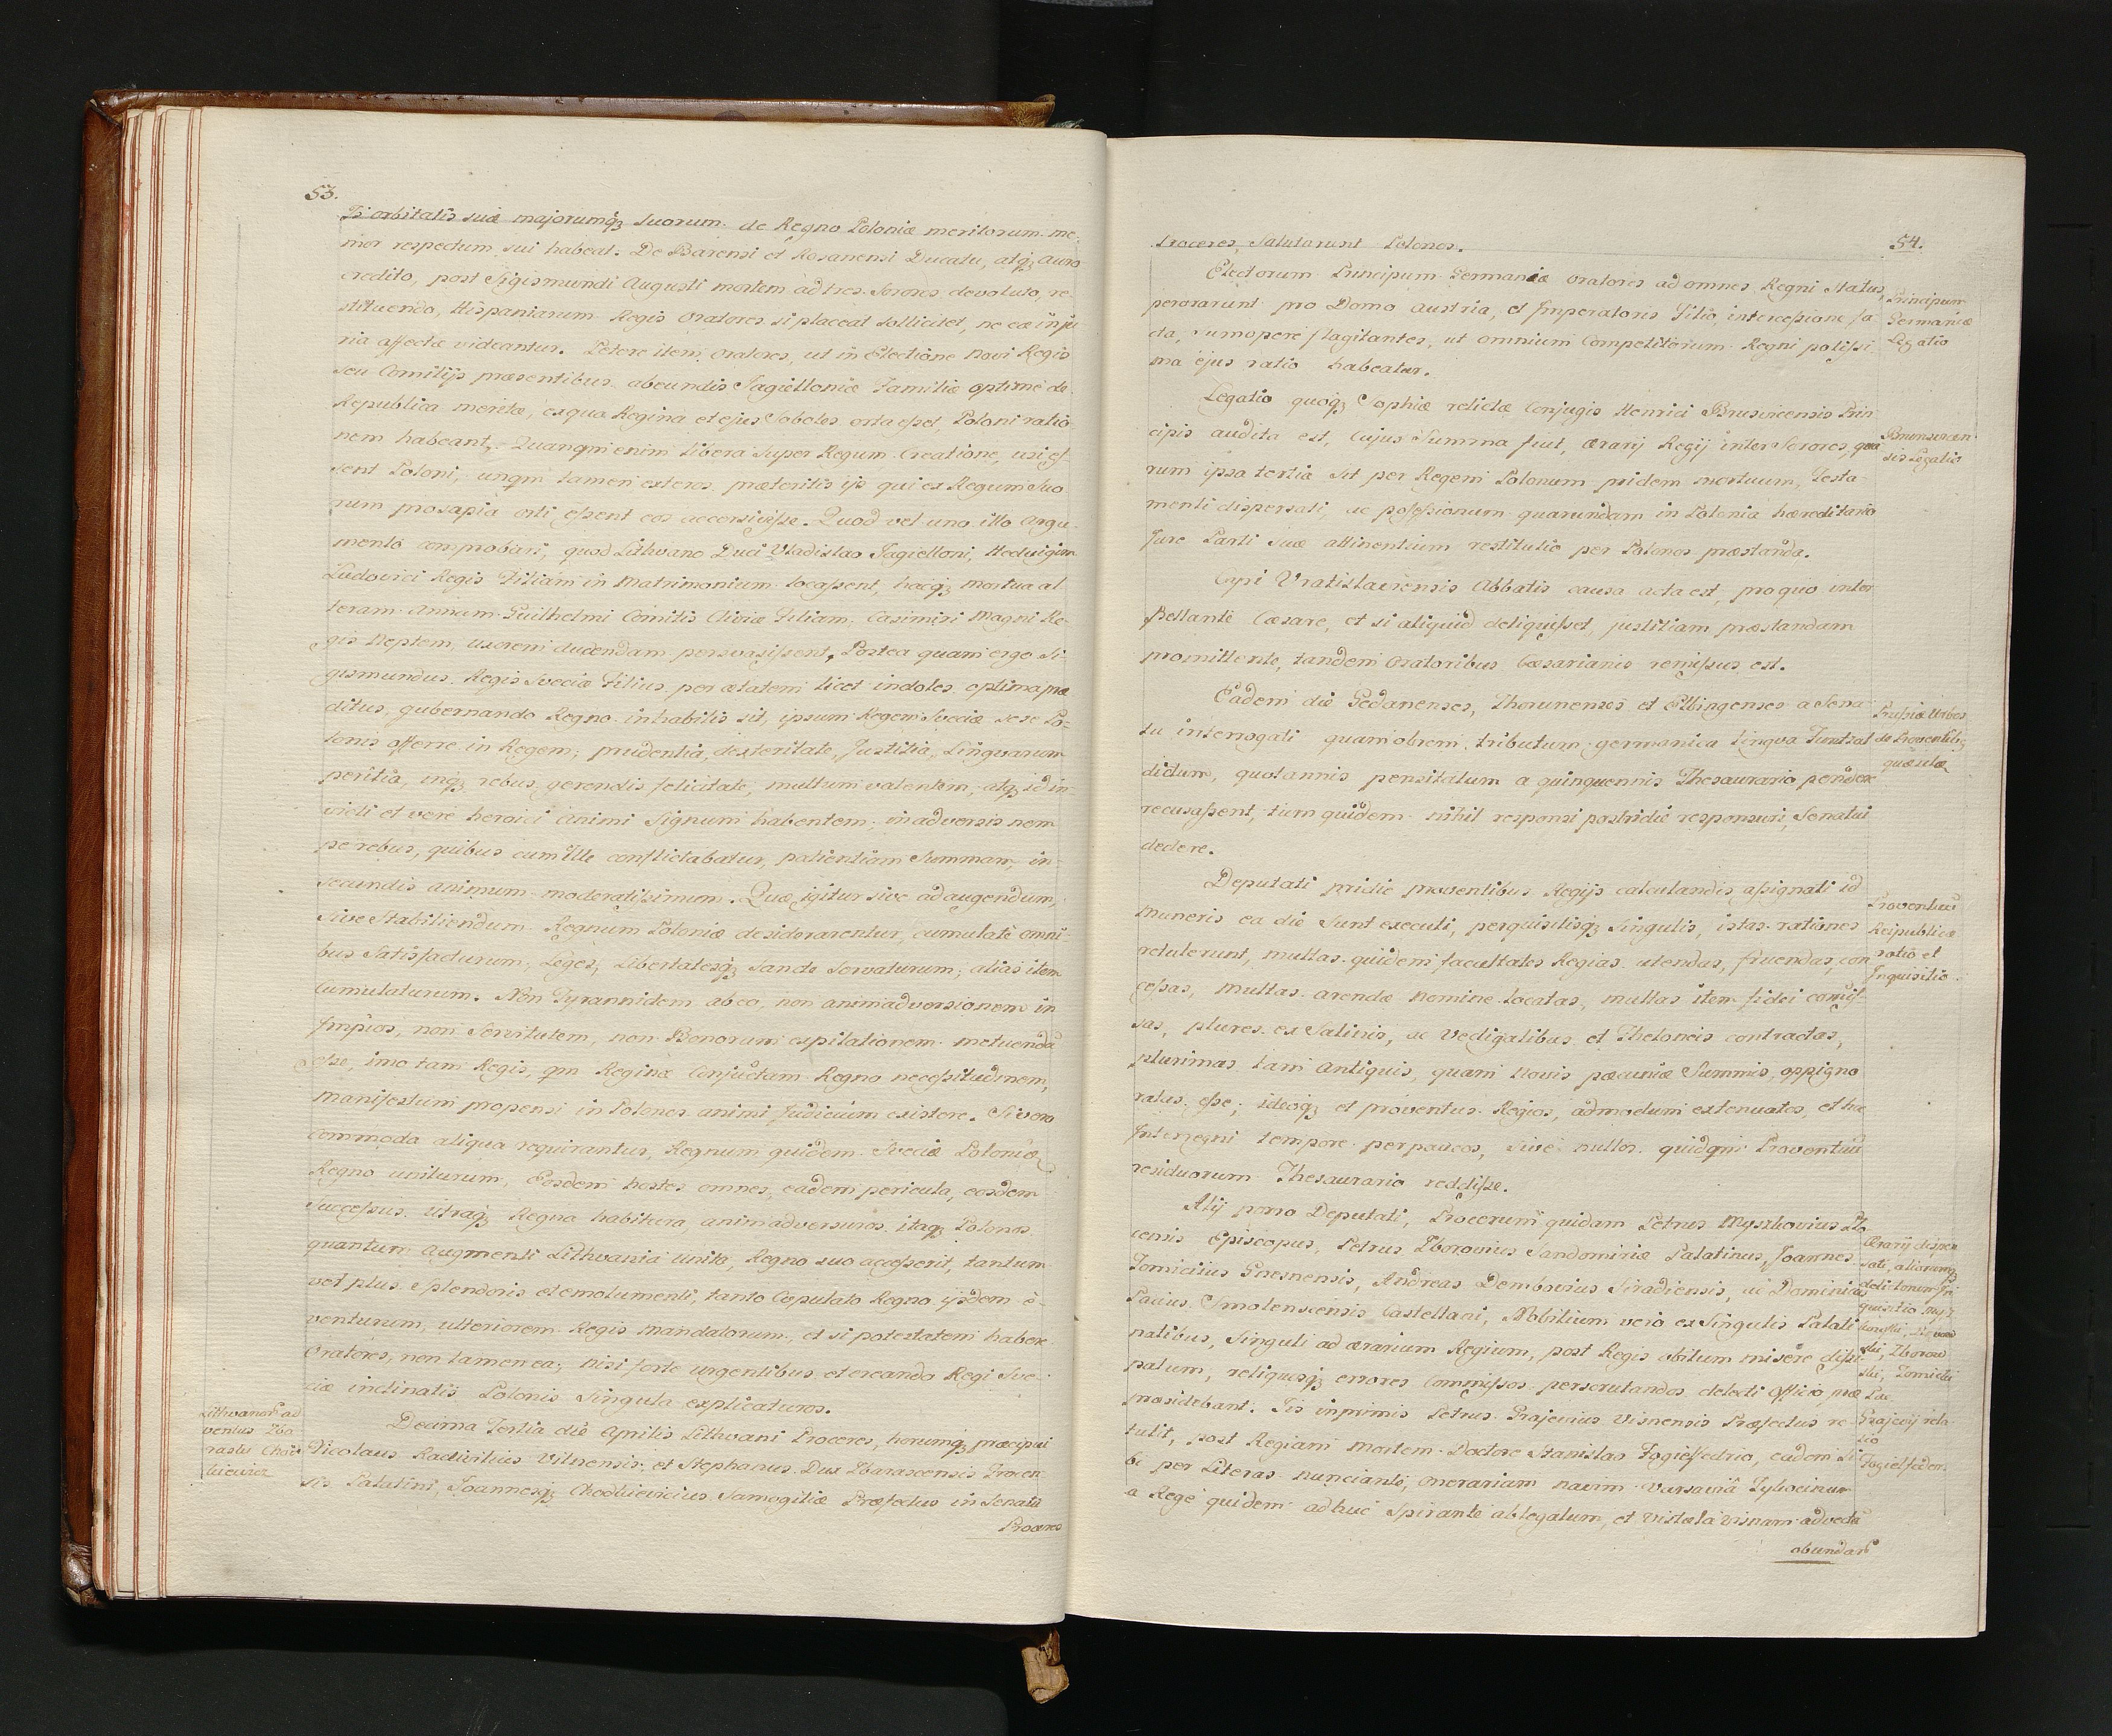 53.
Is orbitatis suæ majorumqꝫ suorum de Regno Poloniæ meritorum me-
mor respectum sui habeat. De Barensi et Rosanensi Ducatu, atqꝫ auro
credito, post Sigismundi Augusti mortem ad tres Sorores devoluto, re-
stituendo, Hispaniarum Regis Oratores si placeat sollicitet, ne eæ inju
ria affectæ videantur. Petere item Oratores, ut in Electione Novi Regis
seu Comitijs præsentibus abeundis Jagielloniæ Familiæ optime de
Republica meritæ, ex qua Regina et ejus Soboles orta esset, Poloni ratio
nem habeant. Quanqm enim libera super Regum Creatione, usi es-
sent Poloni, unqm tamen exteros, præteritis ijs qui ex Regum Suo
rum prosapia orti essent eos accersivisse. Quod vel uno illo argu-
mento comprobari, quod Lithvano Duci Vladislao Jagielloni, Hedvigim
Ludovici Regis Filiam in Matrimonium locassent, hacqꝫ mortua al
teram Annam Guilhelmi Comitis Ciliæ Filiam, Casimiri Magni Re-
gis Neptem, uxorem ducendam persvasissent, Postea quam ergo Si-
gismundus Regis Sveciæ Filius per ætatem licet indoles optima præ
ditus, gubernando Regno inhabilis sit, ipsum Regem Sveciæ sese Po-
lonis offerre in Regem; prudentia, dexteritate, Justitia, Lingvarum
peritia, inqꝫ rebus gerendis felicitate, multum valentem, atqꝫ id in
victi et vere heroici animi Signum habentem, in adversis nem
pe rebus, quibus cum ille conflictabatur, patientiam Summam, in-
secundis animum moderatissimum. Quæ igitur sive ad augendum,
sive Stabiliendum Regnum Poloniæ desiderarentur, cumulate omni-
bus Satisfacturum, Leges, Libertatesqꝫ sancte servaturum, alias item
cumulaturum. Non Tyrannidem ab eo, non animadversionem in
Impios, non Servitutem, non Bonorum expilationem metuenda
esse, imo tam Regis, qm Reginæ Conjuctam Regno necessitudinem,
manifestum propensi in Polonos animi Judicium existere. Si vero
commoda aliqua requirantur, Regnum quidem Sveciæ Poloniæ
Regno uniturum, Eosdem hostes omnes, eadem pericula, eosdem
Successus utraqꝫ Regna habitura, animadversuros itaqꝫ Polonos
quantum Augmenti Lithvania unita, Regno suo accesserit, tantum
vel plus Splendoris et emolumenti, tanto Copulato Regno ijsdem e-
venturum, ulteriorem Regis mandatorum, et si potestatem habere
Oratores, non tamen ea, nisi forte urgentibus et creando Regi Sve-
ciæ inclinatis Polonis Singula explicaturos.
Decima Tertia die Aprilis Lithvani Proceres, horumqꝫ præcipui
Nicolaus Radivilius Vilnensis et Stephanus Dux Zbarascensis Trocen
sis Palatini, Joannesqꝫ Chodkievicius Samogitiæ Præfectus in Senatu
Proceres
Lithvanor ad
ventus Zba
raski Chod
kiewicz
54.
Proceres, Salutarunt Polonos.
Electorum Principum Germaniæ Oratores ad omnes Regni Status,
perorarunt pro Domo Austria, et Imperatoris Filio, intercessione fa
cta, sumopere flagitantes, ut omnium Competitorum Regni potissi-
ma ejus ratio habeatur.
Legatio quoqꝫ Sophiæ relictæ Conjugis Henrici Brusvicensis Prin
cipis audita est, Cujus Summa fuit, Ærarij Regij inter Sorores, qua
rum ipsa tertia sit per Regem Polonum pridem mortuum, Testa
menti dispersati, ac possessionum quarundam in Polonia hæreditario
Jure Parti suæ attinentium restitutio per Polonos præstanda.
Cyri Vratislaviensis Abbatis causa acta est, pro quo inter
pellante Cæsare, et si aliquid deliquisset, justitiam præstandam
promittente, tandem Oratoribus Cæsarianis remissus est.
Eadem die Gedanenses, Thorunenses et Elbingenses a Sena-
tu interrogati quamobrem tributum germanica lingva Funtzal
dictum, quotannis pensitatum a quinquennis Thesaurario pendere
recusassent, tum quidem nihil responsi postridie responsuri, Senatui
dedere.
Deputati pridie proventibus Regijs calculandis assignati id
muneris ea die Sunt executi, perquisitisqꝫ Singulis, istas rationes
retulerunt, multas quidem facultates Regias utendas, fruendas, con
cessas, multas arendæ nomine locatas, multas item fidei comis-
sas, plures ex Salinis, ac Vectigalibus et Theloneis contractas,
plurimas tam Antiquis, quam Novis pæcuniæ Summis, oppigno
ratas esse, ideoqꝫ et proventus Regios, admodum extenuatos, et hæ
Interregni tempore perpaucos, sive nullos quidqm Proventuū
residuorum Thesaurario reddisse.
Alij porro Deputati, Procerum quidam Petrus Myszkovius Plo-
censis Episcopus, Petrus Zborovius Sandomiriæ Palatinus, Joannes
Tomicius Gnesnensis, Andreas Dembovius Siradiensis, ac Dominicus
Pacius Smolenscensis Castellani, Nobilium vero ex Singulis Palati
natibus, Singuli ad ærarium Regium, post Regis obitum misere dissi
patum, reliquosqꝫ errores Commissos perscrutandos delecti Officio præ
præsidebant. Iis inprimis Petrus Grajevius Visnensis Præfectus re
tulit, post Regiam mortem Doctore Stanislao Fogielfedrio, eadem Si
bi per Literas nunciante, Onerariam navim Varsavia Tykocinum
a Rege quidem adhuc Spirante ablegatum, et Vistula Visnam advecta
abundar
Principum
Germaniæ
Legatio
Brunsvicen
sis Legatio
Prussiæ Urbes
de Proventibꝫ
quæsitæ
Proventuū
Reipublicæ
ratio et
Inquisitio.
Ærarij dispen
sati, aliorumqꝫ
delictorum In
quisitio Mysz
kowski,
ski, Zborow
ski, Tomicki
Pac
Grajevij rela
tio
Fogielfeder.